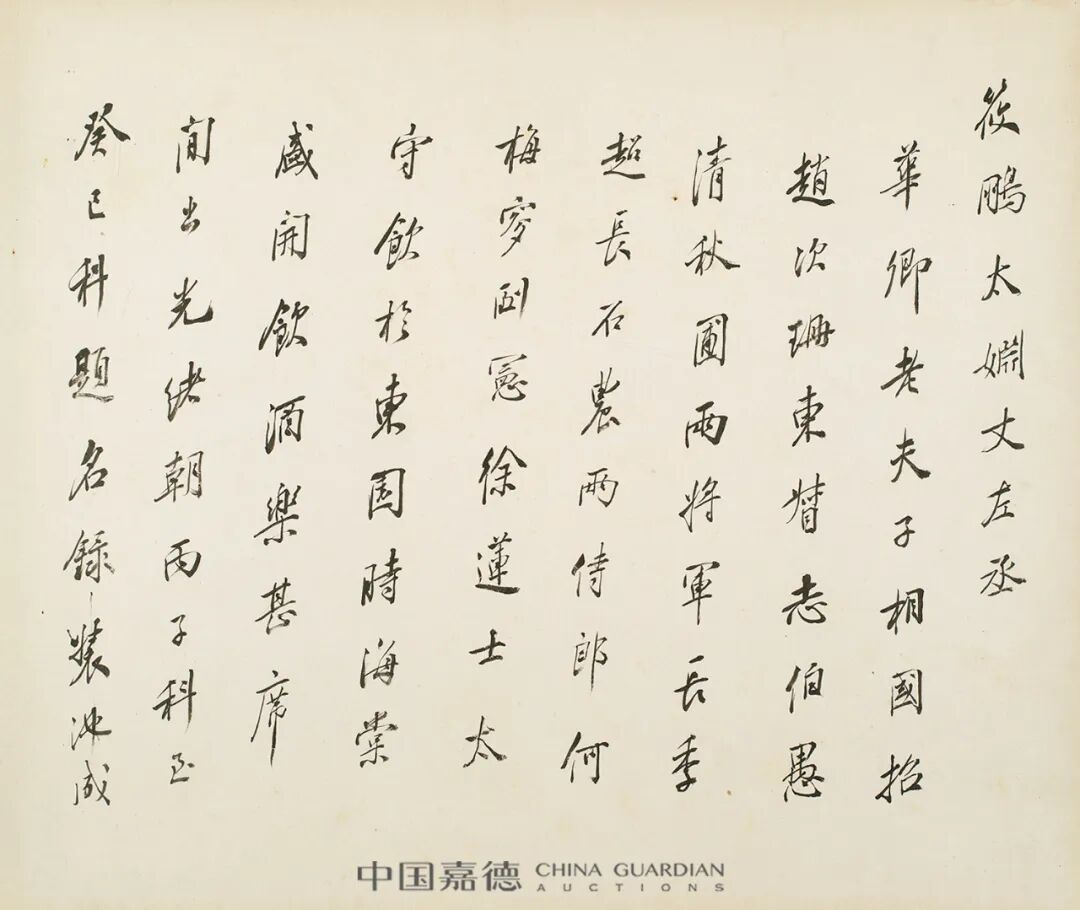 筱鵬太姻丈左丞
華卿老夫子相國招
趙次珊東督志伯愚
清秋圃兩將軍長季
超長石農兩侍郎何
梅廖閣憲徐蓮士太
守飲於東園時海棠
盛開飲酒樂甚席
間出光緒朝丙子科至
癸巳科題名錄裝池成
中国嘉德 CHINA GUARDIAN
AUCTIONS